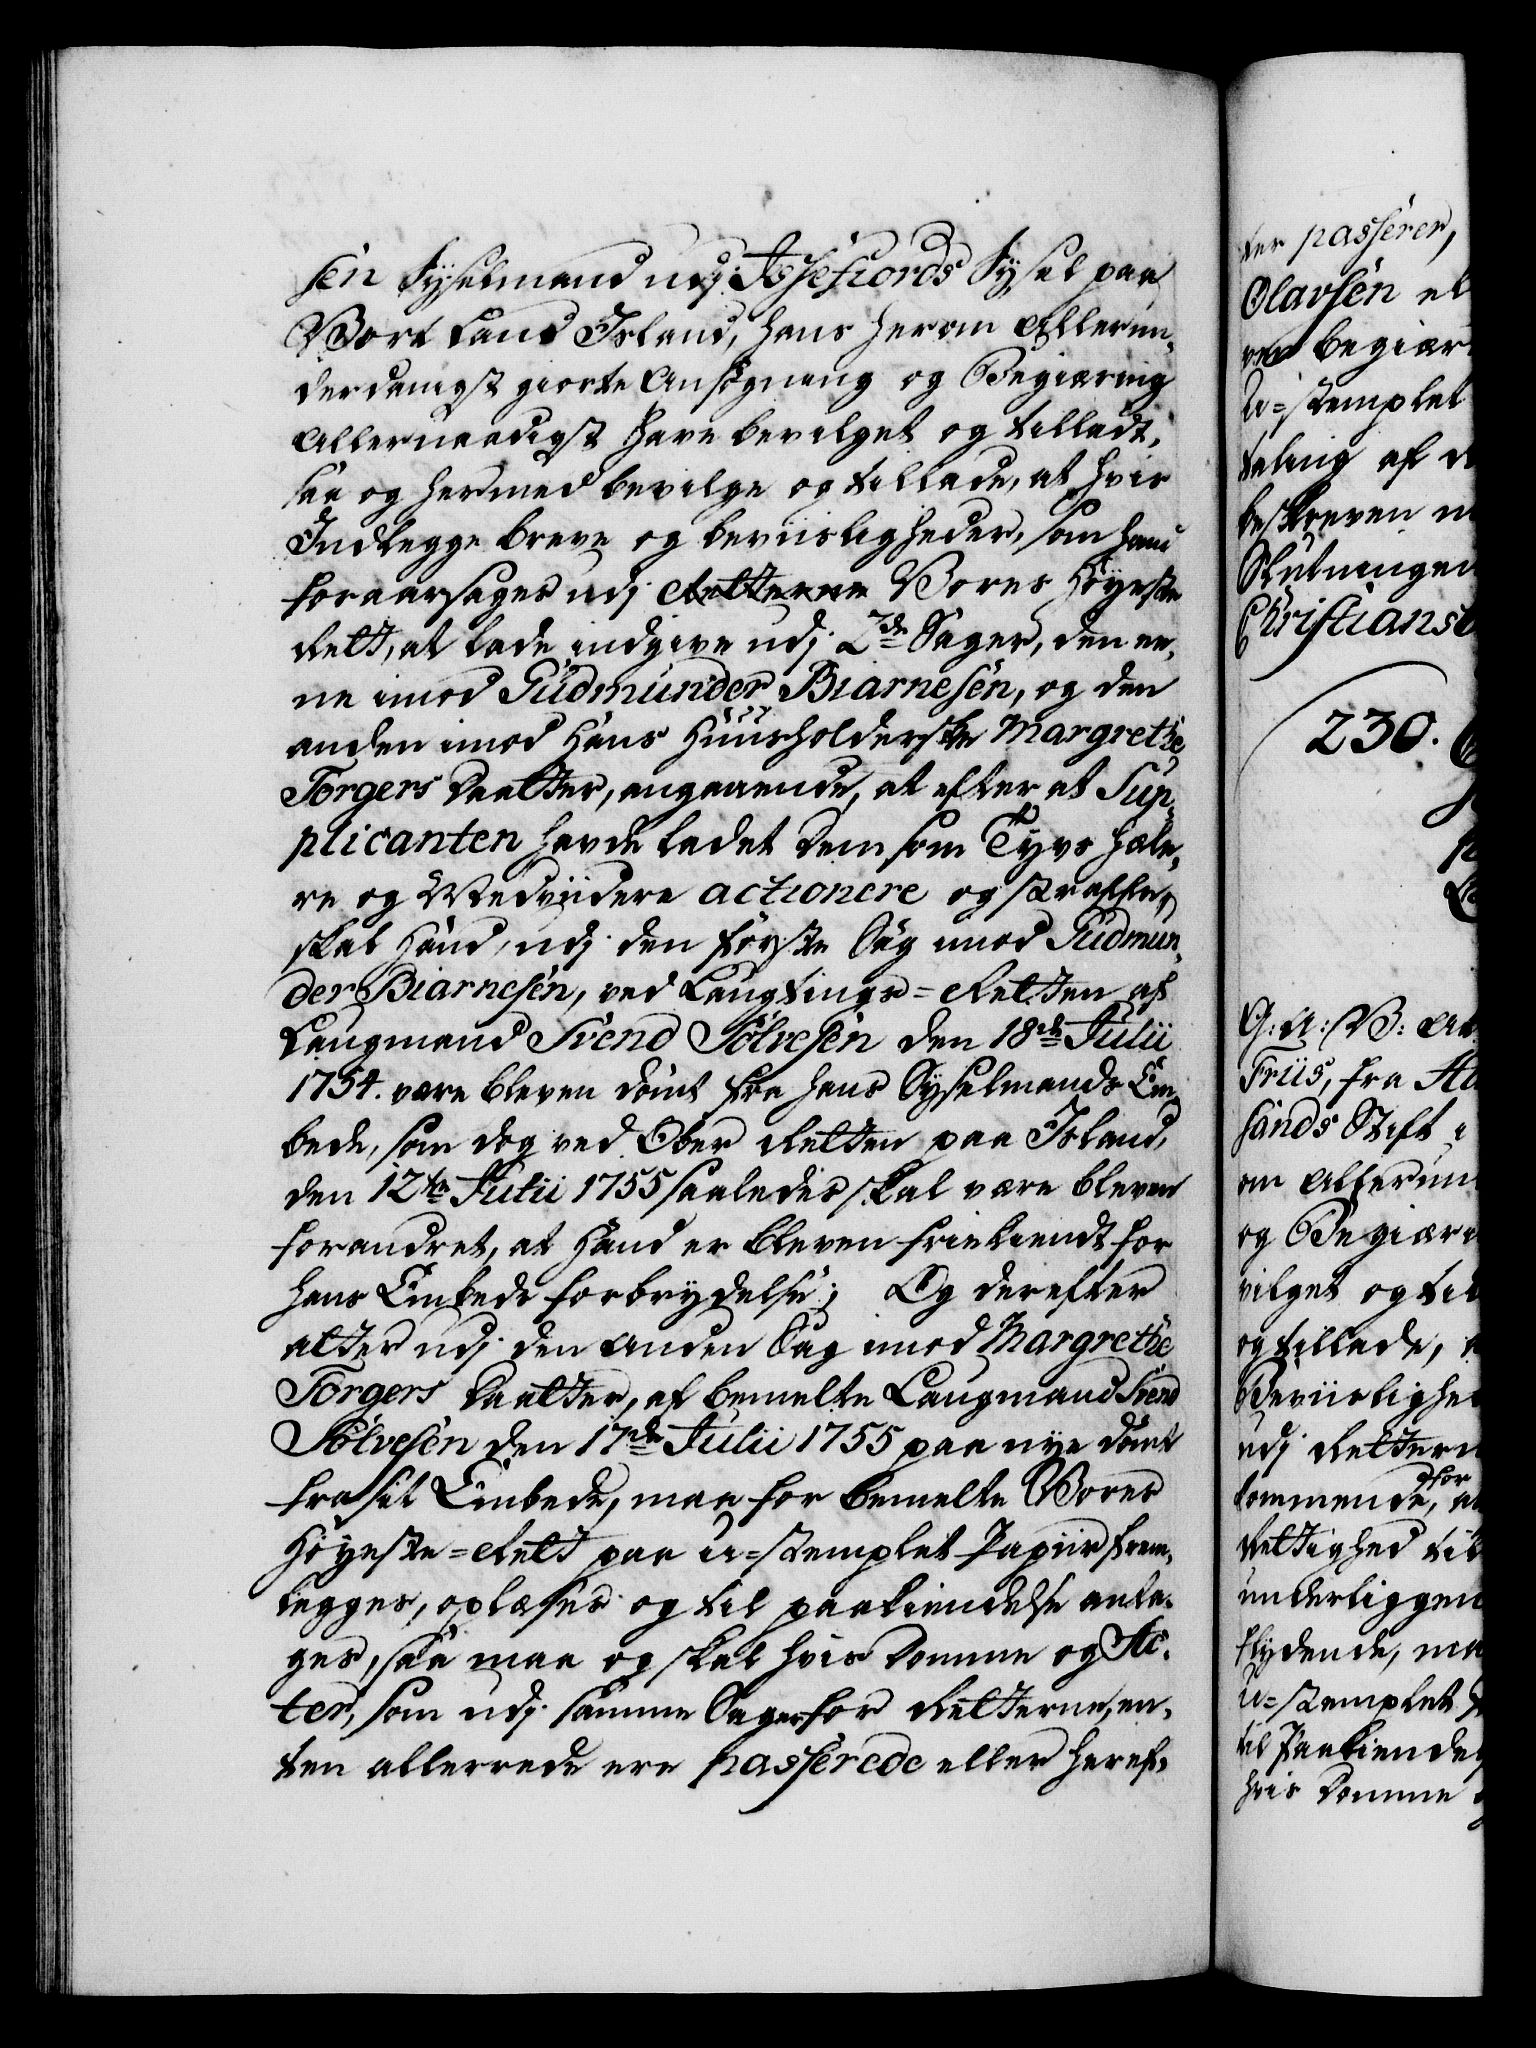 sen Sysselmand udj Issefiords Syssel paa
Vort Land Island, hans herom Allerun-
derdanigst giorte Ansøgning og Begiæring
Allernaadigst have bevilget og tilladt,
saa og hermed bevilge og tillade, at hvis
Indlegge breve og beviisligheder, som hand
foraarsages udj Retterne Vores Høyeste
Rett, at lade indgive udj 2de Sager, den ee-
ne imod Gudmunder Biarnesen, og den
anden imod Hans Huusholderske Margrethe
Torgers Daatter, angaaende, at efter at Sup-
plicanten havde ladet dem som Tyvs Hæle-
re og Medviidere actionere og straffe,
skal Hand, udj den første Sag imod Gudmun-
der Biarnesen, ved Laugtings-Retten af
Laugmand Svend Sølvesen den 18de Julii
1754. være bleven dømt fra hans Sysselmands Em-
bede, som dog ved Ober Retten paa Island,
den 12te Julii 1755 saaledes skal være bleven
forandret, at Hand er bleven frikiendt for
hans Embeds forbrydelse; Og derefter
atter udj den Anden Sag imod Margrethe
Torgers Daatter, af bemelte Laugmand Svend
Sølvesen den 17de Julii 1755 paa nye dømt
fra sit Embede, maa for bemelte Vores
Høyeste-Rett paa u-stemplet Papiir frem-
legges, oplæses og til paakiendelse anta-
ges, saa maa og skal hvis Domme og Ac-
ter, som udj samme Sager for Retterne, en-
ten allerrede ere passerede eller heref-
ter passerer,
Olavsen el
begiær
u-stemplet
taling af d
beskreven
Slutningen
Christiansb
230.
G: A: V: At
Friis, fra
sands Stift i
om Allerun
og Begiær
vilget og til
og tillade,
Beviislighed
udj Retter
kommende, for
Rettighed til
underliggen
flydende, maa
u-stemplet
til Paakiende
hvis Domme